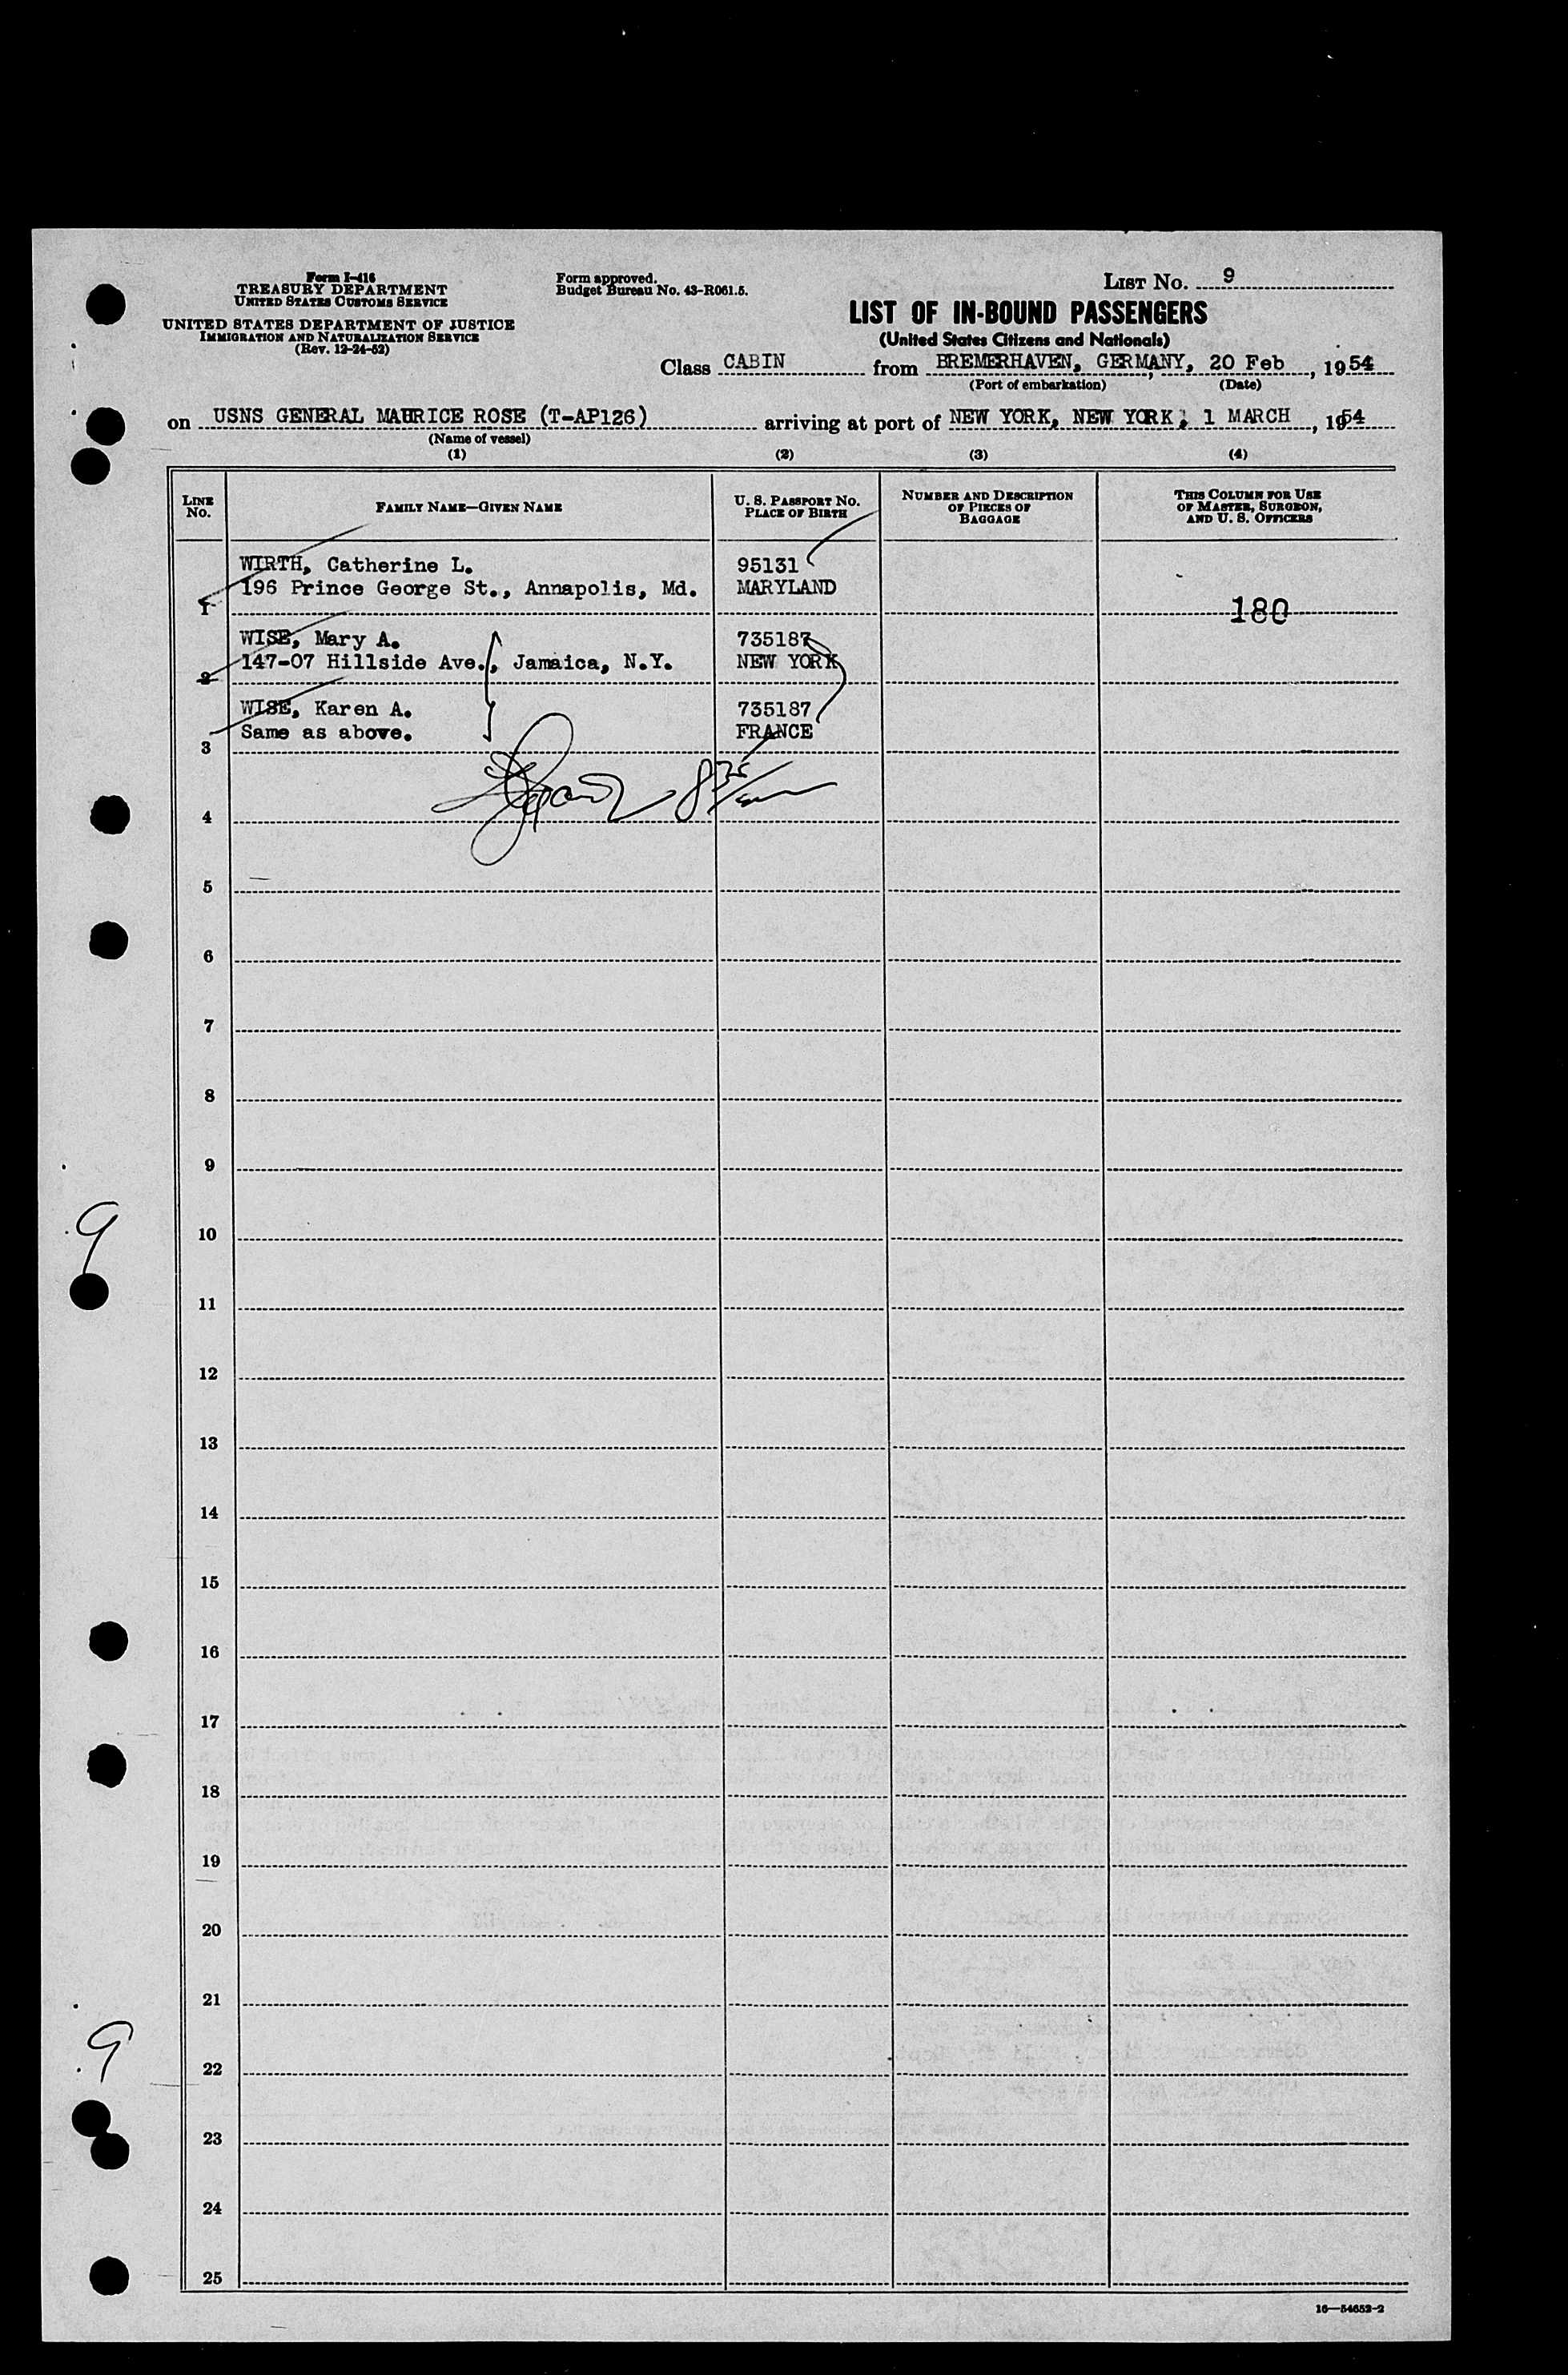 Form I-416
TREASURY DEPARTMENT
UNITED STATES CUSTOMS SERVICE
UNITED STATES DEPARTMENT OF JUSTICE
IMMIGRATION AND NATURALIZATION SERVICE
(Rev. 12-24-52)
Form approved.
Budget Bureau No. 43-R061.5.
LIST No. 9
LIST OF IN-BOUND PASSENGERS
(United States Citizens and Nationals)
Class CABIN from BREMERHAVEN, GERMANY, 20 Feb, 1954
(Port of embarkation) (Date)
on USNS GENERAL MAURICE ROSE (T-AP126) arriving at port of NEW YORK, NEW YORK, 1 MARCH, 1954
(Name of vessel)
(1) (2) (3) (4)
LINE No.
FAMILY NAME—GIVEN NAME
U. S. PASSPORT NO.
PLACE OF BIRTH
NUMBER AND DESCRIPTION
OF PIECES OF
BAGGAGE
THIS COLUMN FOR USE
OF MASTER, SURGEON,
AND U. S. OFFICERS
WIRTH, Catherine L. 95131
196 Prince George St., Annapolis, Md. MARYLAND
1 180
WISE, Mary A. 735187
147-07 Hillside Ave., Jamaica, N.Y. NEW YORK
2
WISE, Karen A. 735187
Same as above. FRANCE
3
4
5
6
7
8
9
9
10
11
12
13
14
15
16
17
18
19
20
21
9
22
23
24
25
16—54652-2